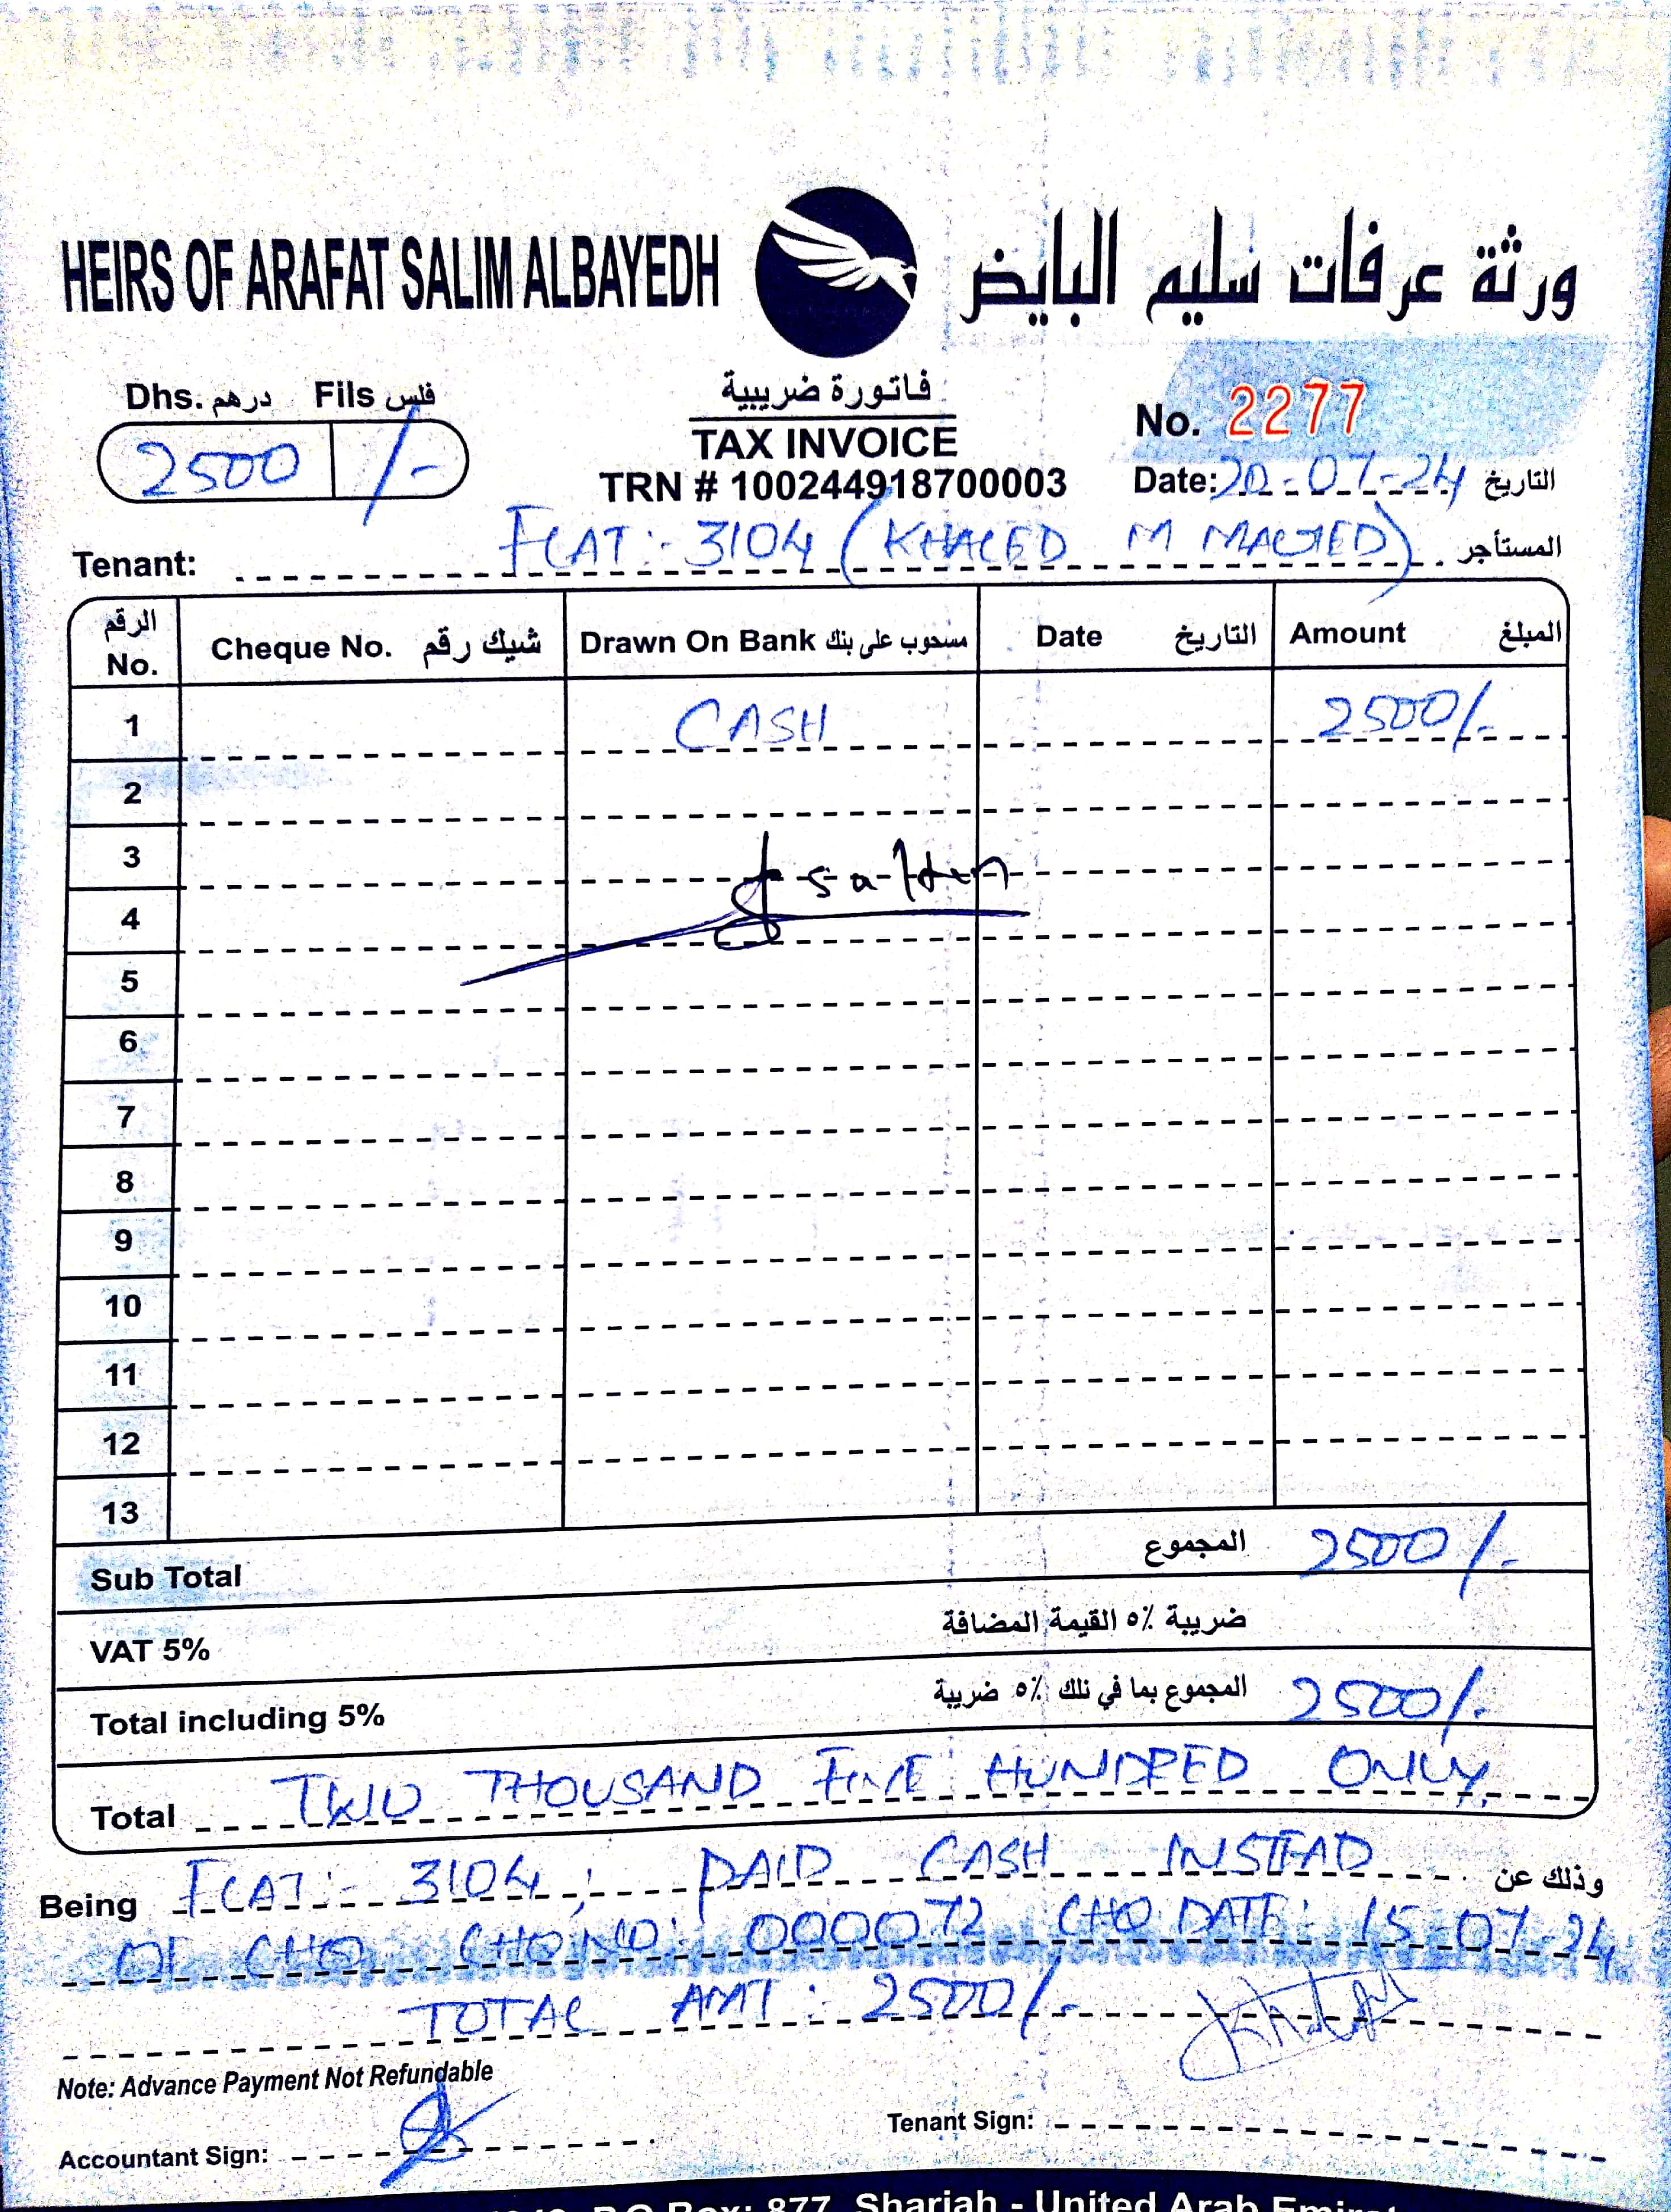 HEIRS OF ARAFAT SALIM ALBAYEDH ورثة عرفات سليم البايض
Dhs. درهم Fils فلس
2500 /-
فاتورة ضريبية
TAX INVOICE
TRN # 100244918700003
No. 2277
Date: 20-07-24 التاريخ
Tenant: FLAT:- 3104 (KHALED M MAJED) المستأجر
الرقم No. Cheque No. شيك رقم Drawn On Bank مسحوب على بنك Date التاريخ Amount المبلغ
1 CASH 2500/-
2
3
4
5
6
7
8
9
10
11
12
13
Sub Total المجموع 2500/-
VAT 5% ضريبة ٥٪ القيمة المضافة
Total including 5% المجموع بما في ذلك ٥٪ ضريبة 2500/-
Total TWO THOUSAND FIVE HUNDRED ONLY
Being FLAT:- 3104; PAID CASH INSTEAD وذلك عن
OF CHQ CHQ NO: 000072 CHQ DATE: 15-07-24
TOTAL AMT: 2500/-
Note: Advance Payment Not Refundable
Accountant Sign: Tenant Sign:
P.O Box: 877, Sharjah - United Arab